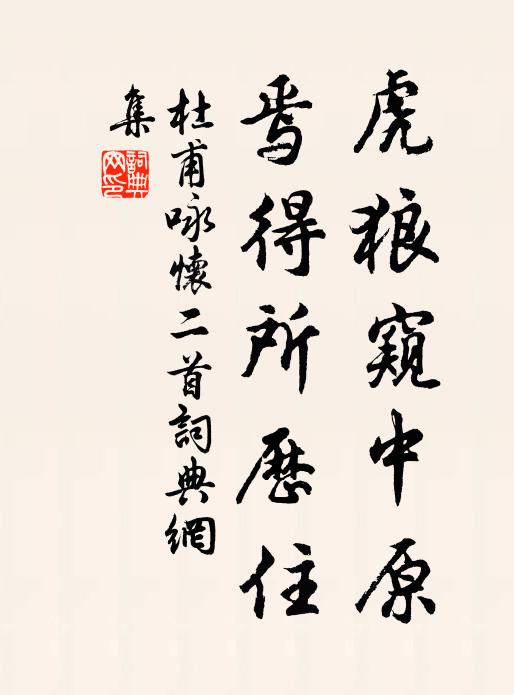 虎狼窺中原
焉得所歷住
杜甫詠懷二首詞典網
集
詞典
网印